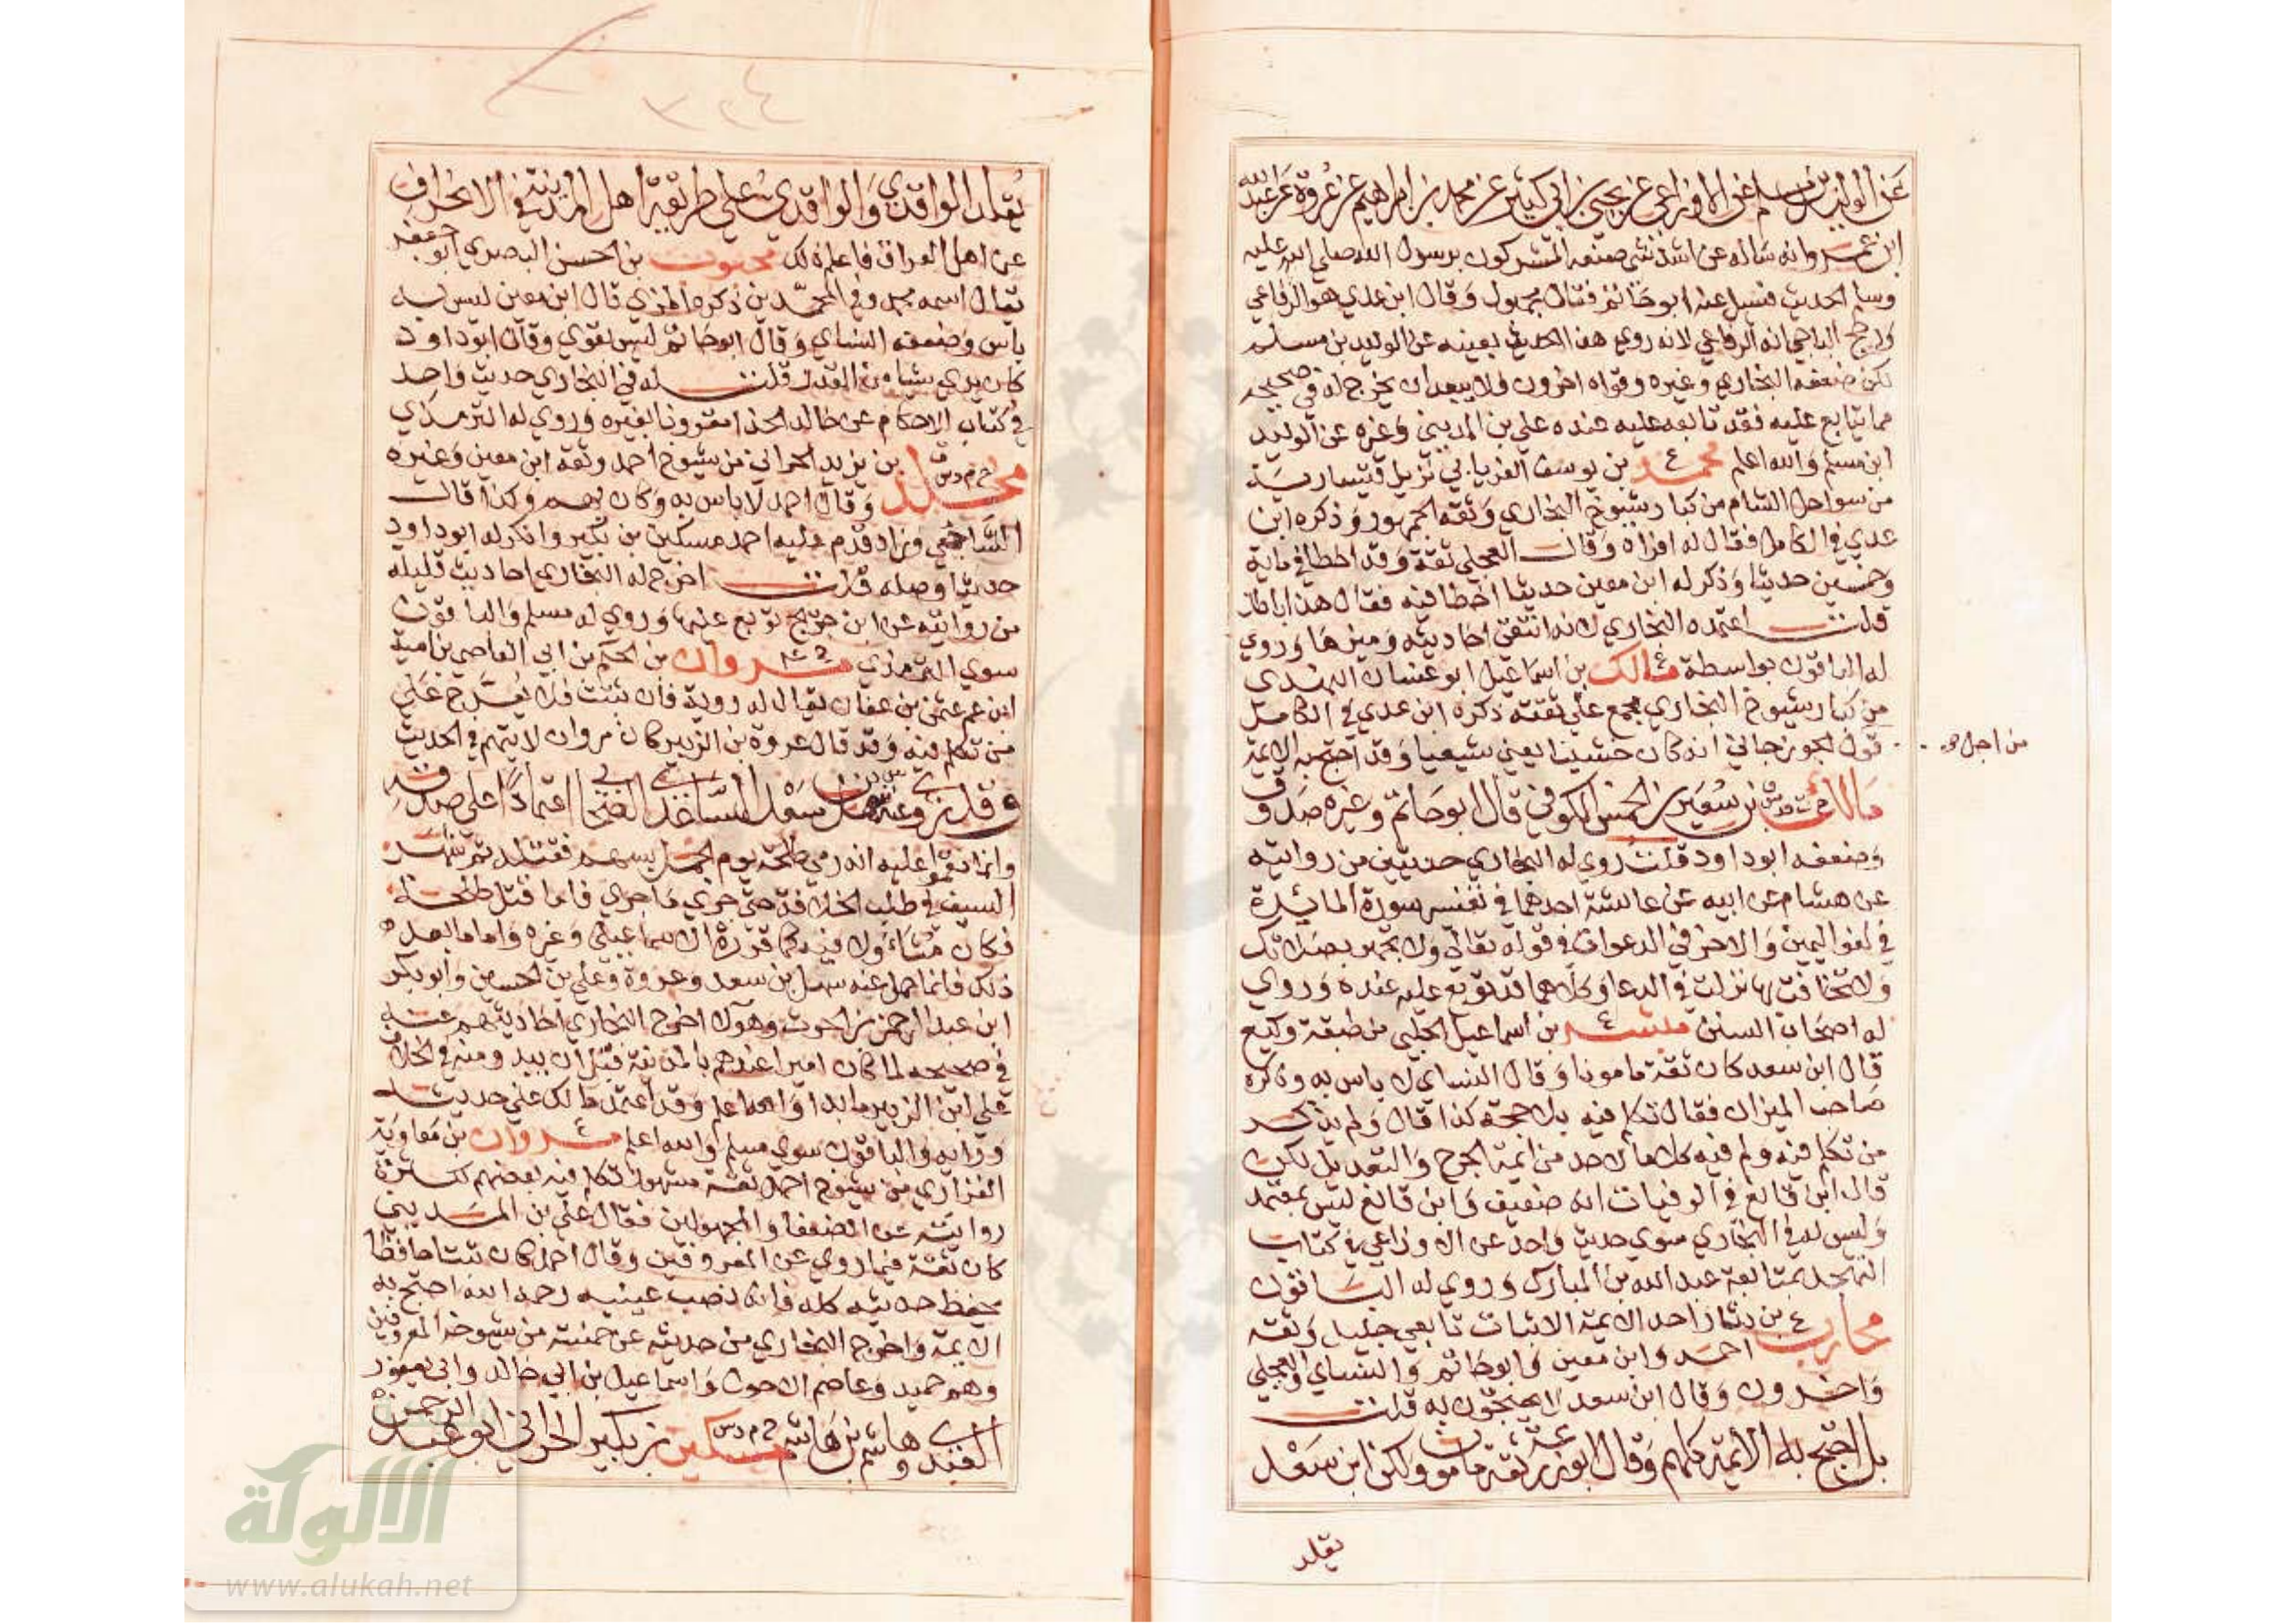 عن الوليد بن مسلم عن الاوزاعي عن يحيى بن ابي كثير عن محمد بن ابراهيم عن عروة عن عبد الله
ابن عمرو انه ساله عن اشد شي صنعه المشركون برسول الله صلي الله عليه
وسلم الحديث فسيل عنه ابو حاتم فقال مجهول وقال ابن عدي هو الرفاعي
ورجح الباجي انه الرفاعي لانه روي هذا الحديث بعينه عن الوليد بن مسلم
لكن ضعفه البخاري وغيره وقواه اخرون ولا يبعد ان يخرج له في صحيحه
مما يتابع عليه فقد تابعه عليه عنده علي بن المديني وغيره عن الوليد
ابن مسلم والله اعلم محمد ع بن يوسف الفريابي نزيل قيسارية
من سواحل الشام من كبار شيوخ البخاري وثقه الجمهور وذكره ابن
عدي في الكامل فقال له افراد وقال العجلي ثقة وقد اخطا في ماية
وخمسين حديثا وذكر له ابن معين حديثا اخطا فيه فقال هذا باطل
قلت اعتمده البخاري لانه انتقي احاديثه وميزها وروي
له الباقون بواسطة مالك ع بن اسماعيل ابو غسان النهدي
من كبار شيوخ البخاري مجمع علي ثقته ذكره ابن عدي في الكامل
من اجل
قول الجوزجاني انه كان خشبيا يعني شيعيا وقد احتج به الايمة
مالك خ ت س بن سعير بن الخمس الكوفي قال ابو حاتم وغيره صدوق
وضعفه ابو داود قلت روي له البخاري حديثين من روايته
عن هشام عن ابيه عن عائشة احدهما في تفسير سورة المائدة
في لغو اليمين والاخر في الدعوات في قوله تعالي ولا تجهر بصلاتك
ولا تخافت بها نزلت في الدعا وكلاهما قد توبع عليه عنده وروي
له اصحاب السنن مبشر ع بن اسماعيل الحلبي من طبقة وكيع
قال ابن سعد كان ثقة مامونا وقال النساي لا باس به وذكره
صاحب الميزان فقال تكلم فيه بلا حجة كذا قال ولم يذكر
من تكلم فيه ولم فيه كلاما لاحد من ايمة الجرح والتعديل لكن
قال ابن قانع في الوفيات انه ضعيف وابن قانع ليس بمعتمد
وليس له في البخاري سوي حديث واحد عن الاوزاعي في كتاب
التهجد بمتابعة عبد الله بن المبارك وروي له الباقون
محارب ع بن دثار احد الايمة الاثبات تابعي جليل وثقه
احمد وابن معين وابو حاتم والنساي والعجلي
واخرون وقال ابن سعد لا يحتجون به قلت
بل احتج به الأئمة كلهم وقال ابو زرعة ثقة مامون ولكن ابن سعد
يقلد
يقلد الواقدي والواقدي علي طريقة اهل المدينة في الانحراف
عن اهل العراق فاعلم ذلك محبوب بن الحسن البصري ابو جعفر
يقال اسمه محمد وفي المحمدين ذكره المزي قال ابن معين ليس به
باس وضعفه النساي وقال ابو حاتم ليس بقوي وقال ابو داود
كان يري شيا من القدر قلت له في البخاري حديث واحد
في كتاب الاحكام عن خالد الحذا مقرونا بغيره وروي له الترمذي
مخلد خ م د س ق بن يزيد الحراني من شيوخ احمد وثقه ابن معين وغيره
وقال احمد لا باس به وكان يهم وكذا قال
الساجي وزاد قدم عليه احمد مسكين بن بكير وانكر له ابو داود
حديثا وصله قلت اخرج له البخاري احاديث قليلة
من روايته عن ابن جريج توبع عليها وروي له مسلم والباقون
سوي الترمذي مروان خ ع بن الحكم بن ابي العاصي بن امية
ابن عم عثمن بن عفان يقال له روية فان ثبتت فلا يعرج علي
من تكلم فيه وقد قال عروة بن الزبير كان مروان لا يتهم في الحديث
وقد روي عنه سهل بن سعد الساعدي الصحابي اعتمادا علي صدقه
وانما نقموا عليه انه رمي طلحة يوم الجمل بسهم فقتله ثم شهر
السيف في طلب الخلافة حتي جري ما جري فاما قتل طلحة
فكان متاءولا فيه كما قرره الاسماعيلي وغيره واما ما بعد
ذلك فانما حمل عنه سهل بن سعد وعروة وعلي بن الحسين وابو بكر
ابن عبد الرحمن بن الحرث وهولا اخرج البخاري احاديثهم عنه
في صحيحه لما كان اميرا عندهم بالمدينة قبل ان يبدو منه في الخلاف
علي ابن الزبير ما بدا والله اعلم وقد اعتمد مالك علي حديثه
ورايه والباقون سوي مسلم والله اعلم مروان ع بن معاوية
الفزاري من شيوخ احمد ثقة مشهور تكلم فيه بعضهم لكثرة
روايته عن الضعفا والمجهولين فقال علي ابن المديني
كان ثقة فيما روي عن المعروفين وقال احمد كان ثبتا حافظا
يحفظ حديثه كله فانه نصب عينيه رحمه الله احتج به
الايمة واخرج البخاري من حديثه عن خمسة من شيوخه المعروفين
وهم حميد وعاصم الاحول واسماعيل بن ابي خالد وابي يعفور
العبدي وهاشم بن هاشم مسكين خ م د س بن بكير الحراني ابو عبد الرحمن
الالوكة
www.alukah.net